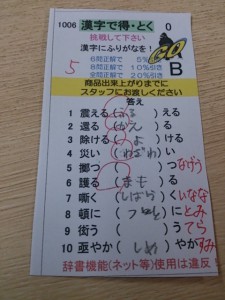 1006 漢字で得・とく 0
挑戦して下さい
漢字にふりがなを!
6問正解で 5%
8問正解で 10%引き
全問正解で 20%引き
GO
B
5
商品出来上がりまでに
スタッフにお渡しください
答え
1 震える(ふる)える
2 還る(かえ)る
3 除ける(よ)ける
4 災い(わざわ)い
5 擲つ( )つ なげう
6 護る(まも)る
7 嘶く(しばら)く いなな
8 頓に( )に とみ
9 街う( )う てら
10 亟やか(しめ)やか すみ
辞書機能(ネット等)使用は違反!